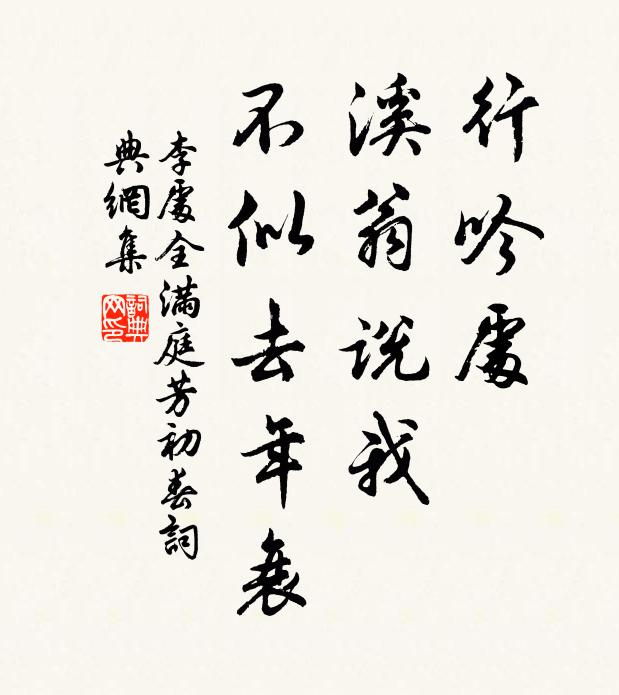 行吟處
溪翁說我
不似去年衰
李處全滿庭芳初春詞
典網集
詞典網印